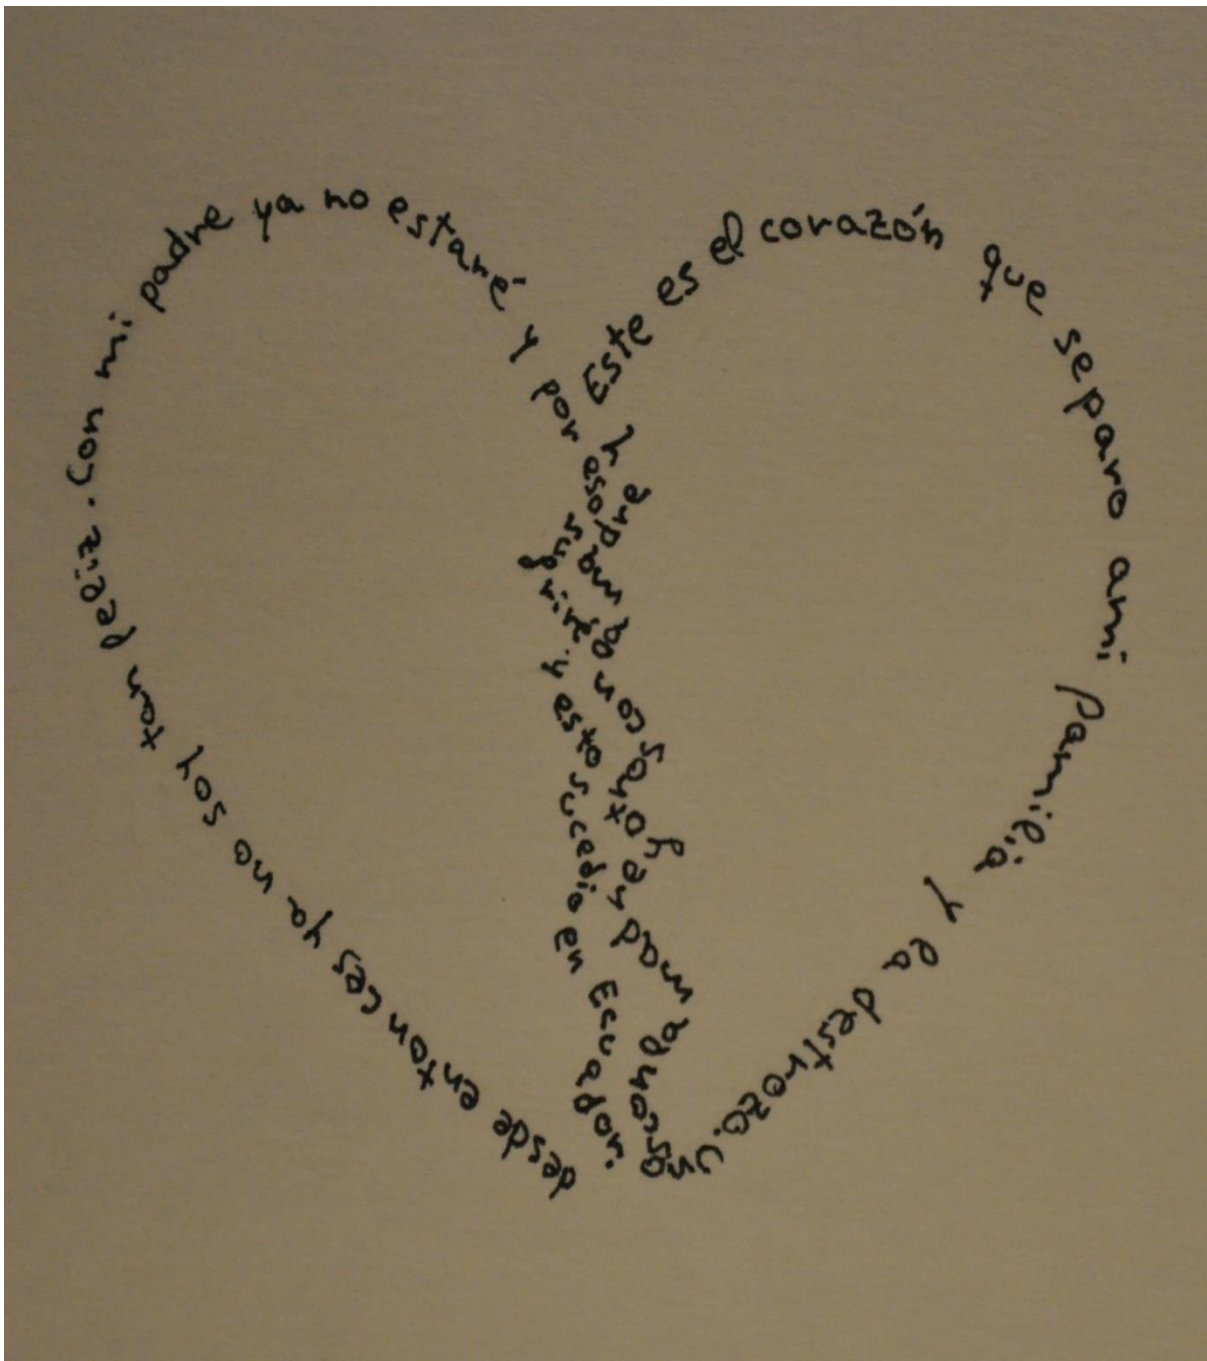 Este es el corazón que separo ami familia y la destrozo. Unos con madre y otros con
desde entonces ya no soy tan feliz. Con mi padre ya no estaré y por eso sufriré y esto sucedio en Ecuador.